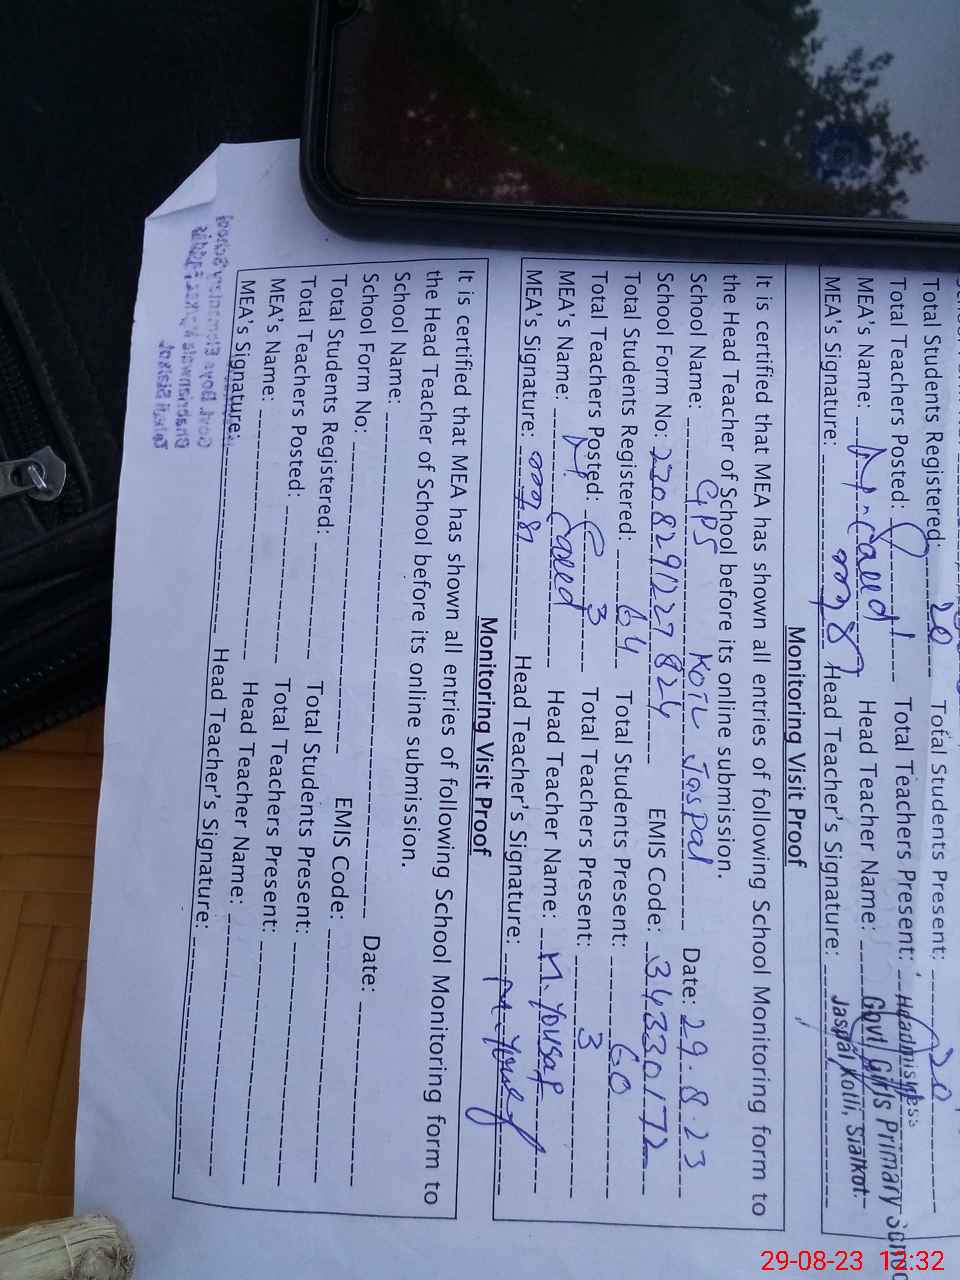 Total Students Registered: 20 Total Students Present: 20
Total Teachers Posted: 1 Total Teachers Present: 1
Headmistress
MEA's Name: Head Teacher Name:
Govt. Girls Primary School
MEA's Signature: Head Teacher's Signature:
Jaspal Kotli, Sialkot.
Monitoring Visit Proof
It is certified that MEA has shown all entries of following School Monitoring form to
the Head Teacher of School before its online submission.
School Name: GPS Kotli Jaspal Date: 29.8.23
School Form No: 230829/227824 EMIS Code: 34330172
Total Students Registered: 64 Total Students Present: 60
Total Teachers Posted: 3 Total Teachers Present: 3
MEA's Name: Head Teacher Name: M. Yousaf
MEA's Signature: Head Teacher's Signature: M. Yousaf
Monitoring Visit Proof
It is certified that MEA has shown all entries of following School Monitoring form to
the Head Teacher of School before its online submission.
School Name: Date:
School Form No: EMIS Code:
Total Students Registered: Total Students Present:
Total Teachers Posted: Total Teachers Present:
MEA's Name: Head Teacher Name:
MEA's Signature: Head Teacher's Signature:
29-08-23 12:32